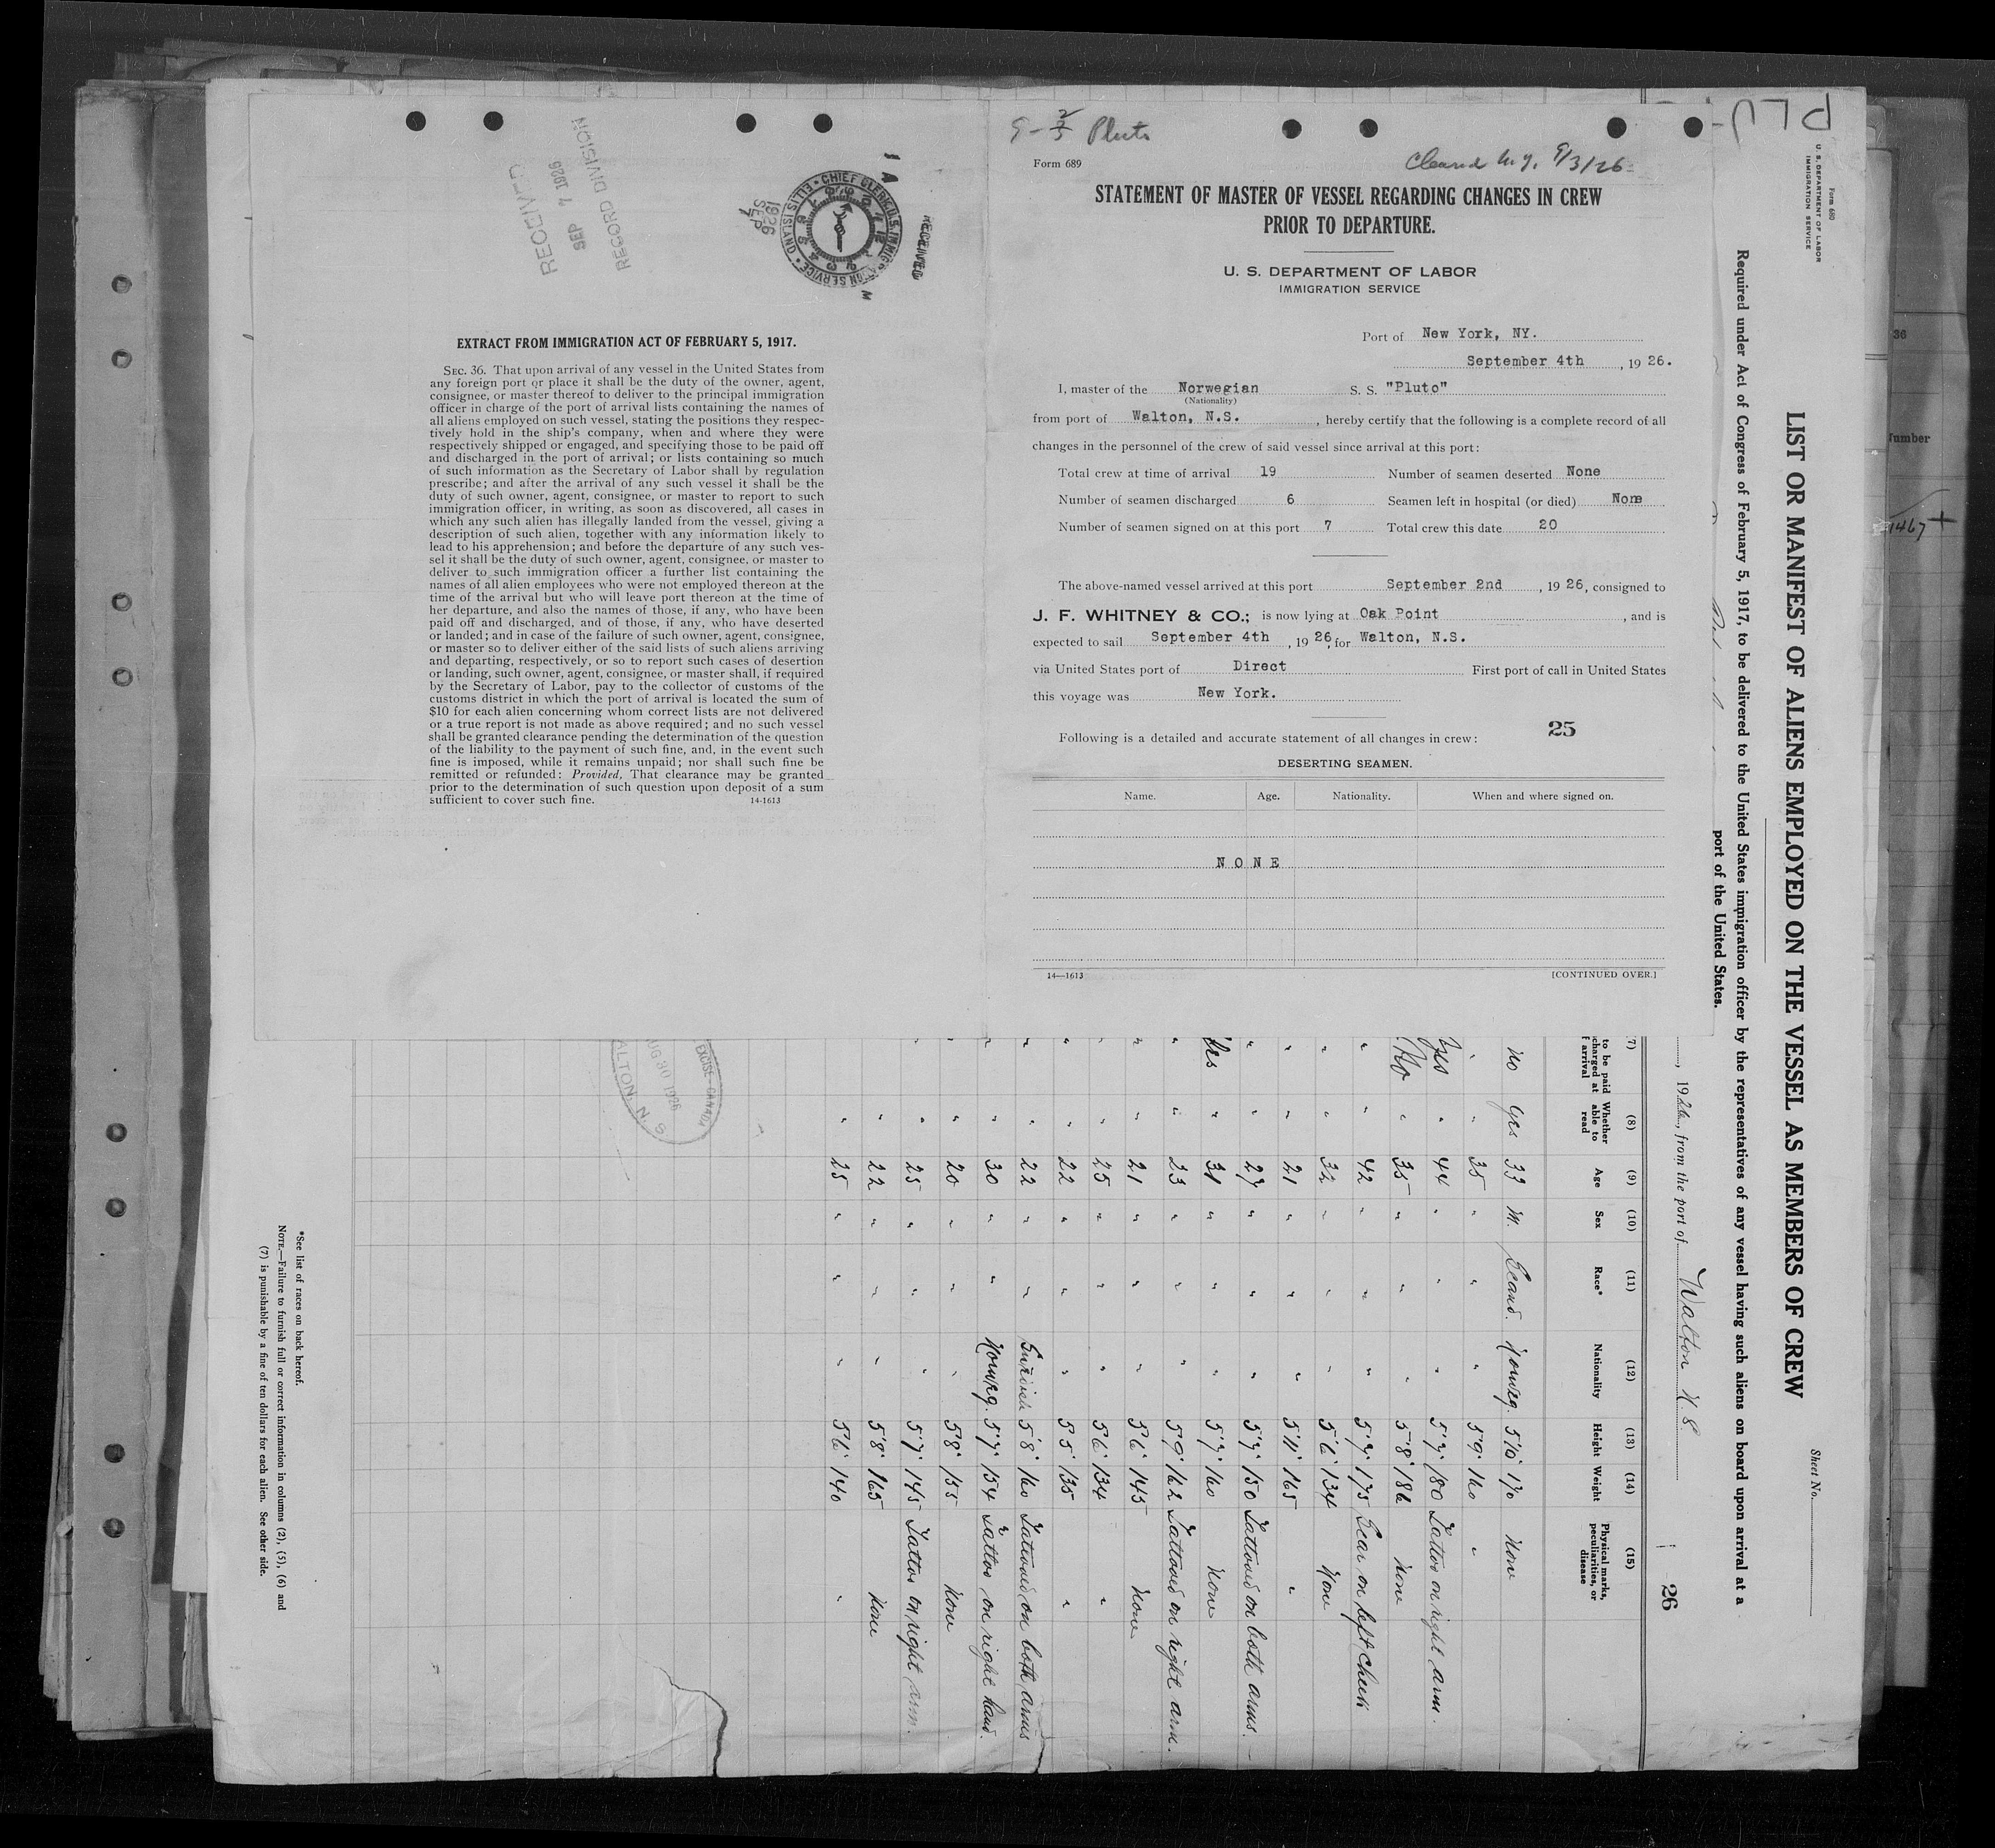 RECEIVED
SEP 7 1926
RECORD DIVISION
1926
SEP
7
RECEIVED
EXTRACT FROM IMMIGRATION ACT OF FEBRUARY 5, 1917.
SEC. 36. That upon arrival of any vessel in the United States from
any foreign port or place it shall be the duty of the owner, agent,
consignee, or master thereof to deliver to the principal immigration
officer in charge of the port of arrival lists containing the names of
all aliens employed on such vessel, stating the positions they respec-
tively hold in the ship's company, when and where they were
respectively shipped or engaged, and specifying those to be paid off
and discharged in the port of arrival; or lists containing so much
of such information as the Secretary of Labor shall by regulation
prescribe; and after the arrival of any such vessel it shall be the
duty of such owner, agent, consignee, or master to report to such
immigration officer, in writing, as soon as discovered, all cases in
which any such alien has illegally landed from the vessel, giving a
description of such alien, together with any information likely to
lead to his apprehension; and before the departure of any such ves-
sel it shall be the duty of such owner, agent, consignee, or master to
deliver to such immigration officer a further list containing the
names of all alien employees who were not employed thereon at the
time of the arrival but who will leave port thereon at the time of
her departure, and also the names of those, if any, who have been
paid off and discharged, and of those, if any, who have deserted
or landed; and in case of the failure of such owner, agent, consignee,
or master so to deliver either of the said lists of such aliens arriving
and departing, respectively, or so to report such cases of desertion
or landing, such owner, agent, consignee, or master shall, if required
by the Secretary of Labor, pay to the collector of customs of the
customs district in which the port of arrival is located the sum of
$10 for each alien concerning whom correct lists are not delivered
or a true report is not made as above required; and no such vessel
shall be granted clearance pending the determination of the question
of the liability to the payment of such fine, and, in the event such
fine is imposed, while it remains unpaid; nor shall such fine be
remitted or refunded: Provided, That clearance may be granted
prior to the determination of such question upon deposit of a sum
sufficient to cover such fine. 14-1613
Pluto
Form 689
Cleared N.Y. 9/3/26
STATEMENT OF MASTER OF VESSEL REGARDING CHANGES IN CREW
PRIOR TO DEPARTURE.
U. S. DEPARTMENT OF LABOR
IMMIGRATION SERVICE
Port of New York, NY.
September 4th, 1926.
I, master of the Norwegian S. S. "Pluto"
(Nationality)
from port of Walton, N.S., hereby certify that the following is a complete record of all
changes in the personnel of the crew of said vessel since arrival at this port:
Total crew at time of arrival 19 Number of seamen deserted None
Number of seamen discharged 6 Seamen left in hospital (or died) None
Number of seamen signed on at this port 7 Total crew this date 20
The above-named vessel arrived at this port September 2nd, 1926, consigned to
J. F. WHITNEY & CO.; is now lying at Oak Point, and is
expected to sail September 4th, 1926, for Walton, N.S.
via United States port of Direct First port of call in United States
this voyage was New York.
25
Following is a detailed and accurate statement of all changes in crew:
DESERTING SEAMEN.
Name. Age. Nationality. When and where signed on.
NONE
14—1613 [CONTINUED OVER.]
PLU
Form 680
U. S. DEPARTMENT OF LABOR
IMMIGRATION SERVICE
Sheet No.
LIST OR MANIFEST OF ALIENS EMPLOYED ON THE VESSEL AS MEMBERS OF CREW
Required under Act of Congress of February 5, 1917, to be delivered to the United States immigration officer by the representatives of any vessel having such aliens on board upon arrival at a
port of the United States.
, 1926, from the port of Walton N.S.
26
(7) (8) (9) (10) (11) (12) (13) (14) (15)
to be paid
charged at
f arrival
Whether able to read Age Sex Race* Nationality Height Weight Physical marks, peculiarities, or disease
no yes 33 M. Scand. Norweg. 5'10" 170 None
" " 35 " " " 5'9" 160 "
Yes " 44 " " " 5'7" 180 Tattoo on right arm.
No " 35 " " " 5'8" 186 None
" " 42 " " " 5'7" 175 Scar on left cheek
" " 32 " " " 5'6" 134 None
" " 21 " " " 5'11" 165 "
" " 27 " " " 5'7" 150 Tattooed on both arms.
Yes " 31 " " " 5'7" 160 None
" " 23 " " " 5'9" 162 Tattooed on right arm.
" " 21 " " " 5'6" 145 None
" " 25 " " " 5'6" 134 "
" " 22 " " " 5'5" 135 "
" " 22 " " Swedish 5'8" 160 Tattooed on both arms
" " 30 " " Norweg. 5'7" 154 Tattoo on right hand.
" " 20 " " " 5'8" 155 None
" " 25 " " " 5'7" 145 Tattoo on right arm.
" " 22 " " " 5'8" 165 None
" " 25 " " " 5'6" 140 "
EXCISE-CANADA
AUG 30 1926
WALTON, N. S.
*See list of races on back hereof.
NOTE.—Failure to furnish full or correct information in columns (2), (5), (6) and
(7) is punishable by a fine of ten dollars for each alien. See other side.
36
Number
1467